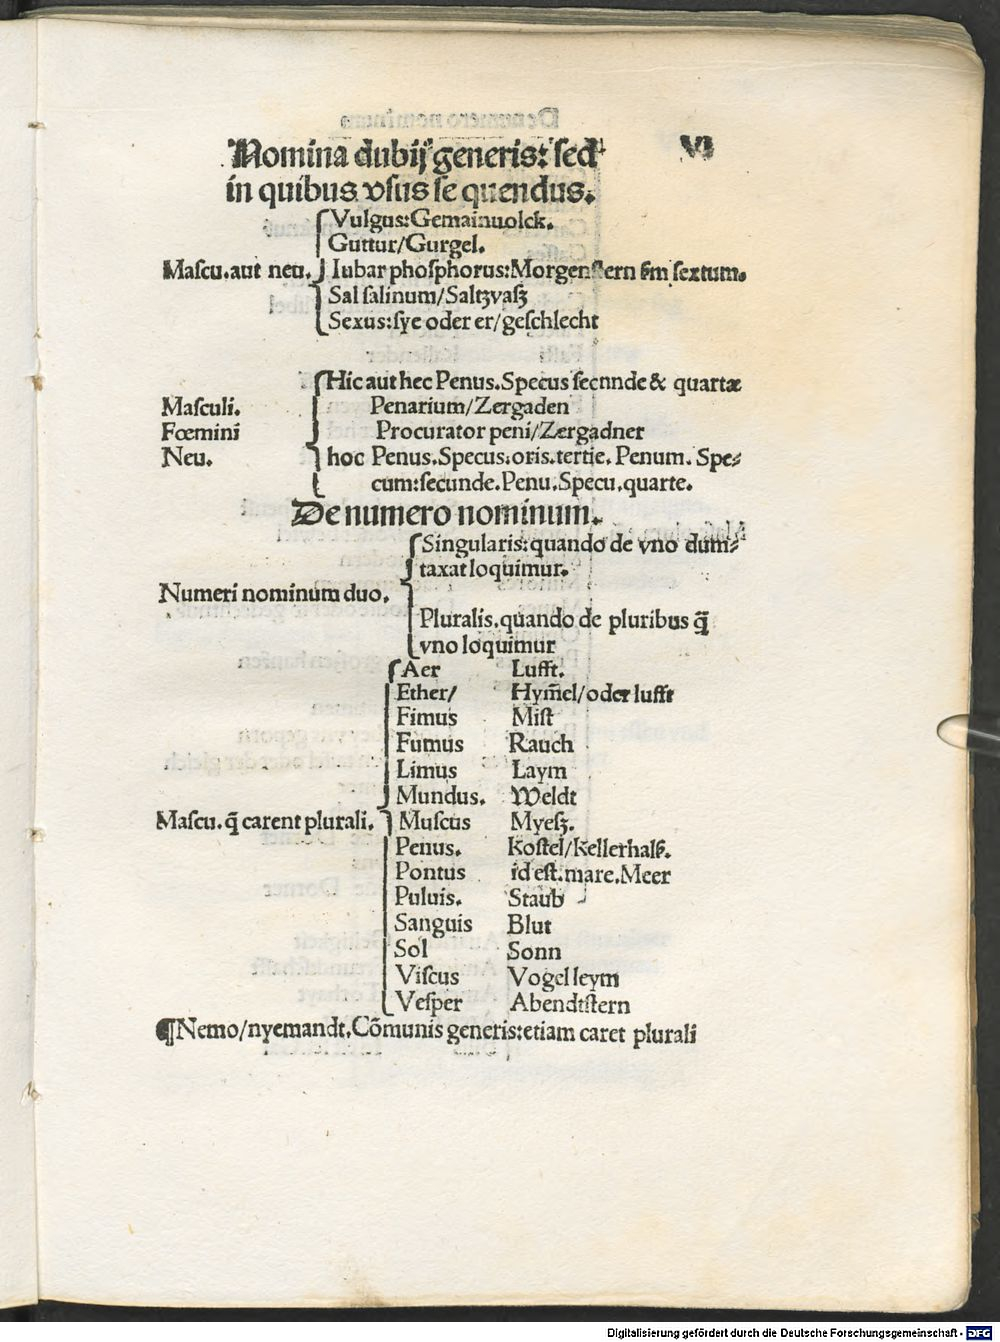 Nomina dubij generis: sed VI
in quibus vsus sequendus.
Vulgus: Gemainuolck.
Guttur/Gurgel.
Mascu. aut neu. Iubar phosphorus: Morgenstern sm sextum.
Sal salinum/Saltzvasz
Sexus: sye oder er/geschlecht
Hic aut hec Penus. Specus secunde & quartæ
Masculi. Penarium/Zergaden
Fœmini Procurator peni/Zergadner
Neu. hoc Penus. Specus: oris. tertie. Penum. Spe⸗
cum: secunde. Penu. Specu. quarte.
De numero nominum.
Singularis: quando de vno dum⸗
taxat loquimur.
Numeri nominum duo.
Pluralis. quando de pluribus q̃
vno loquimur
Aer Lufft.
Ether/ Hym̃el/oder lufft
Fimus Mist
Fumus Rauch
Limus Laym
Mundus. Weldt
Mascu. q̃ carent plurali. Muscus Myesz.
Penus. Kostel/kellerhalß.
Pontus id est. mare. Meer
Puluis. Staub
Sanguis Blut
Sol Sonn
Viscus Vogelleym
Vesper Abendtstern
¶ Nemo/nyemandt. Cõmunis generis: etiam caret plurali
Digitalisierung gefördert durch die Deutsche Forschungsgemeinschaft - DFG